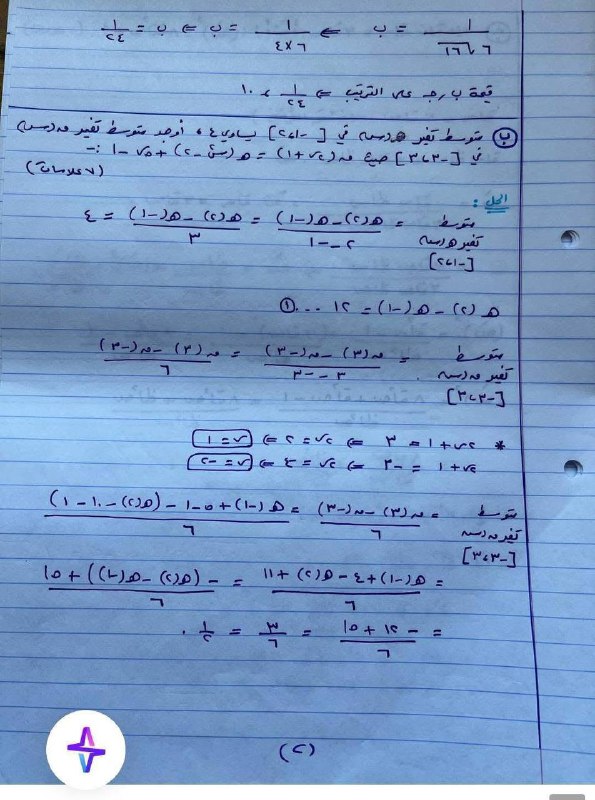 ١/(١٦√٦) = ب ⇐ ١/(٤×٦) = ب ⇐ ب = ١/٢٤
قيمة ب، جـ على الترتيب ⇐ ١/٢٤ ، ١٠
ب) متوسط تغير هـ(س) في [-١، ٢] يساوي ٤، أوجد متوسط تغير ق(س)
في [-٣، ٣] حيث ق(٢س + ١) = هـ( - ٢) + ٥س - ١ :-
(٧ علامات)
الحل :
متوسط تغير هـ(س) [-١، ٢] = (هـ(٢) - هـ(-١))/(٢ - -١) = (هـ(٢) - هـ(-١))/٣ = ٤
هـ(٢) - هـ(-١) = ١٢ ... ①
متوسط تغير ق(س) [-٣، ٣] = (ق(٣) - ق(-٣))/(٣ - -٣) = (ق(٣) - ق(-٣))/٦
* ٢س + ١ = ٣ ⇐ ٢س = ٢ ⇐ س = ١
٢س + ١ = -٣ ⇐ ٢س = -٤ ⇐ س = -٢
متوسط تغير ق(س) [-٣، ٣] = (ق(٣) - ق(-٣))/٦ = (هـ(-١) + ٥ - ١ - (هـ(٢) - ١٠ - ١))/٦
= (هـ(-١) + ٤ - هـ(٢) + ١١)/٦ = (-(هـ(٢) - هـ(-١)) + ١٥)/٦
= (-١٢ + ١٥)/٦ = ٣/٦ = ١/٢ .
(٢)